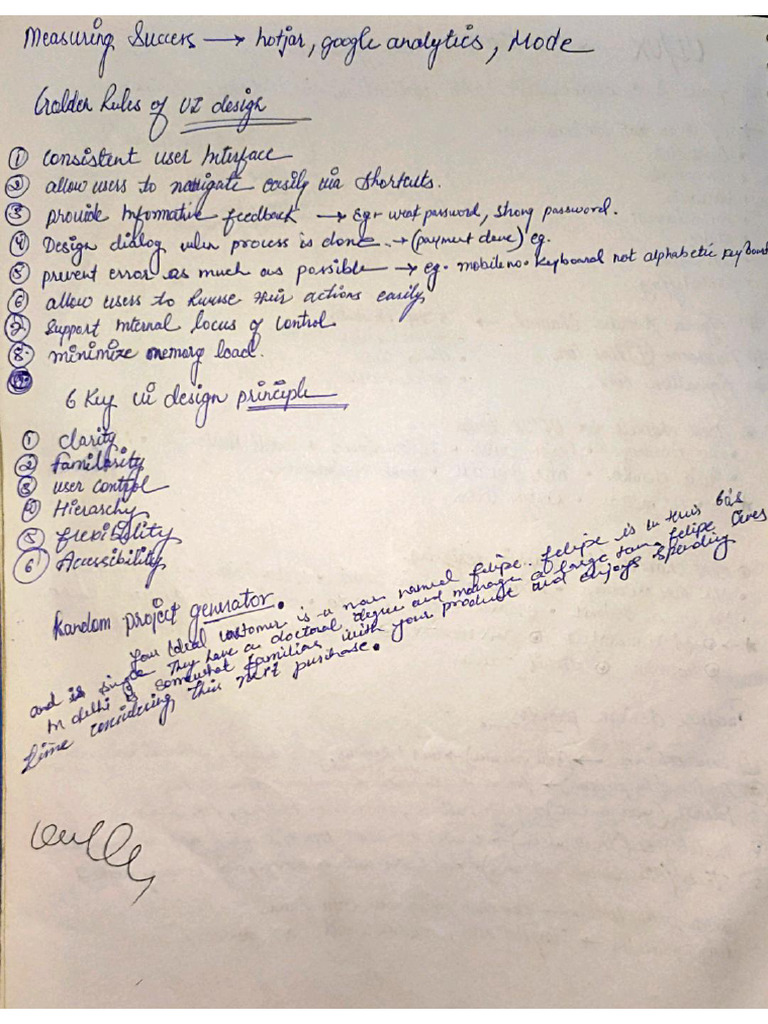 Measuring Success → hotjar, google analytics, Mode
Golden Rules of UI design
① consistent user Interface
② allow users to navigate easily via shortcuts.
③ provide Informative feedback → Eg→ weak password, strong password.
④ Design dialog when process is done → (payment done) eg.
⑤ prevent error as much as possible → eg. mobile no. keyboard not alphabetic keyboard
⑥ allow users to Reverse their actions easily
⑦ Support Internal locus of control
⑧ minimize memory load.
6 Key UI design principle
① clarity
② familarity
③ user control
④ Hierarchy
⑤ flexibility
⑥ Accessibility
Random project generator.
You Ideal customer is a man named felipe. felipe is in their 60's
and is single They have a doctoral degree and manage a large team felipe lives
In delhi is somewhat familiar with your product and enjoys spending
time considering this next purchase.